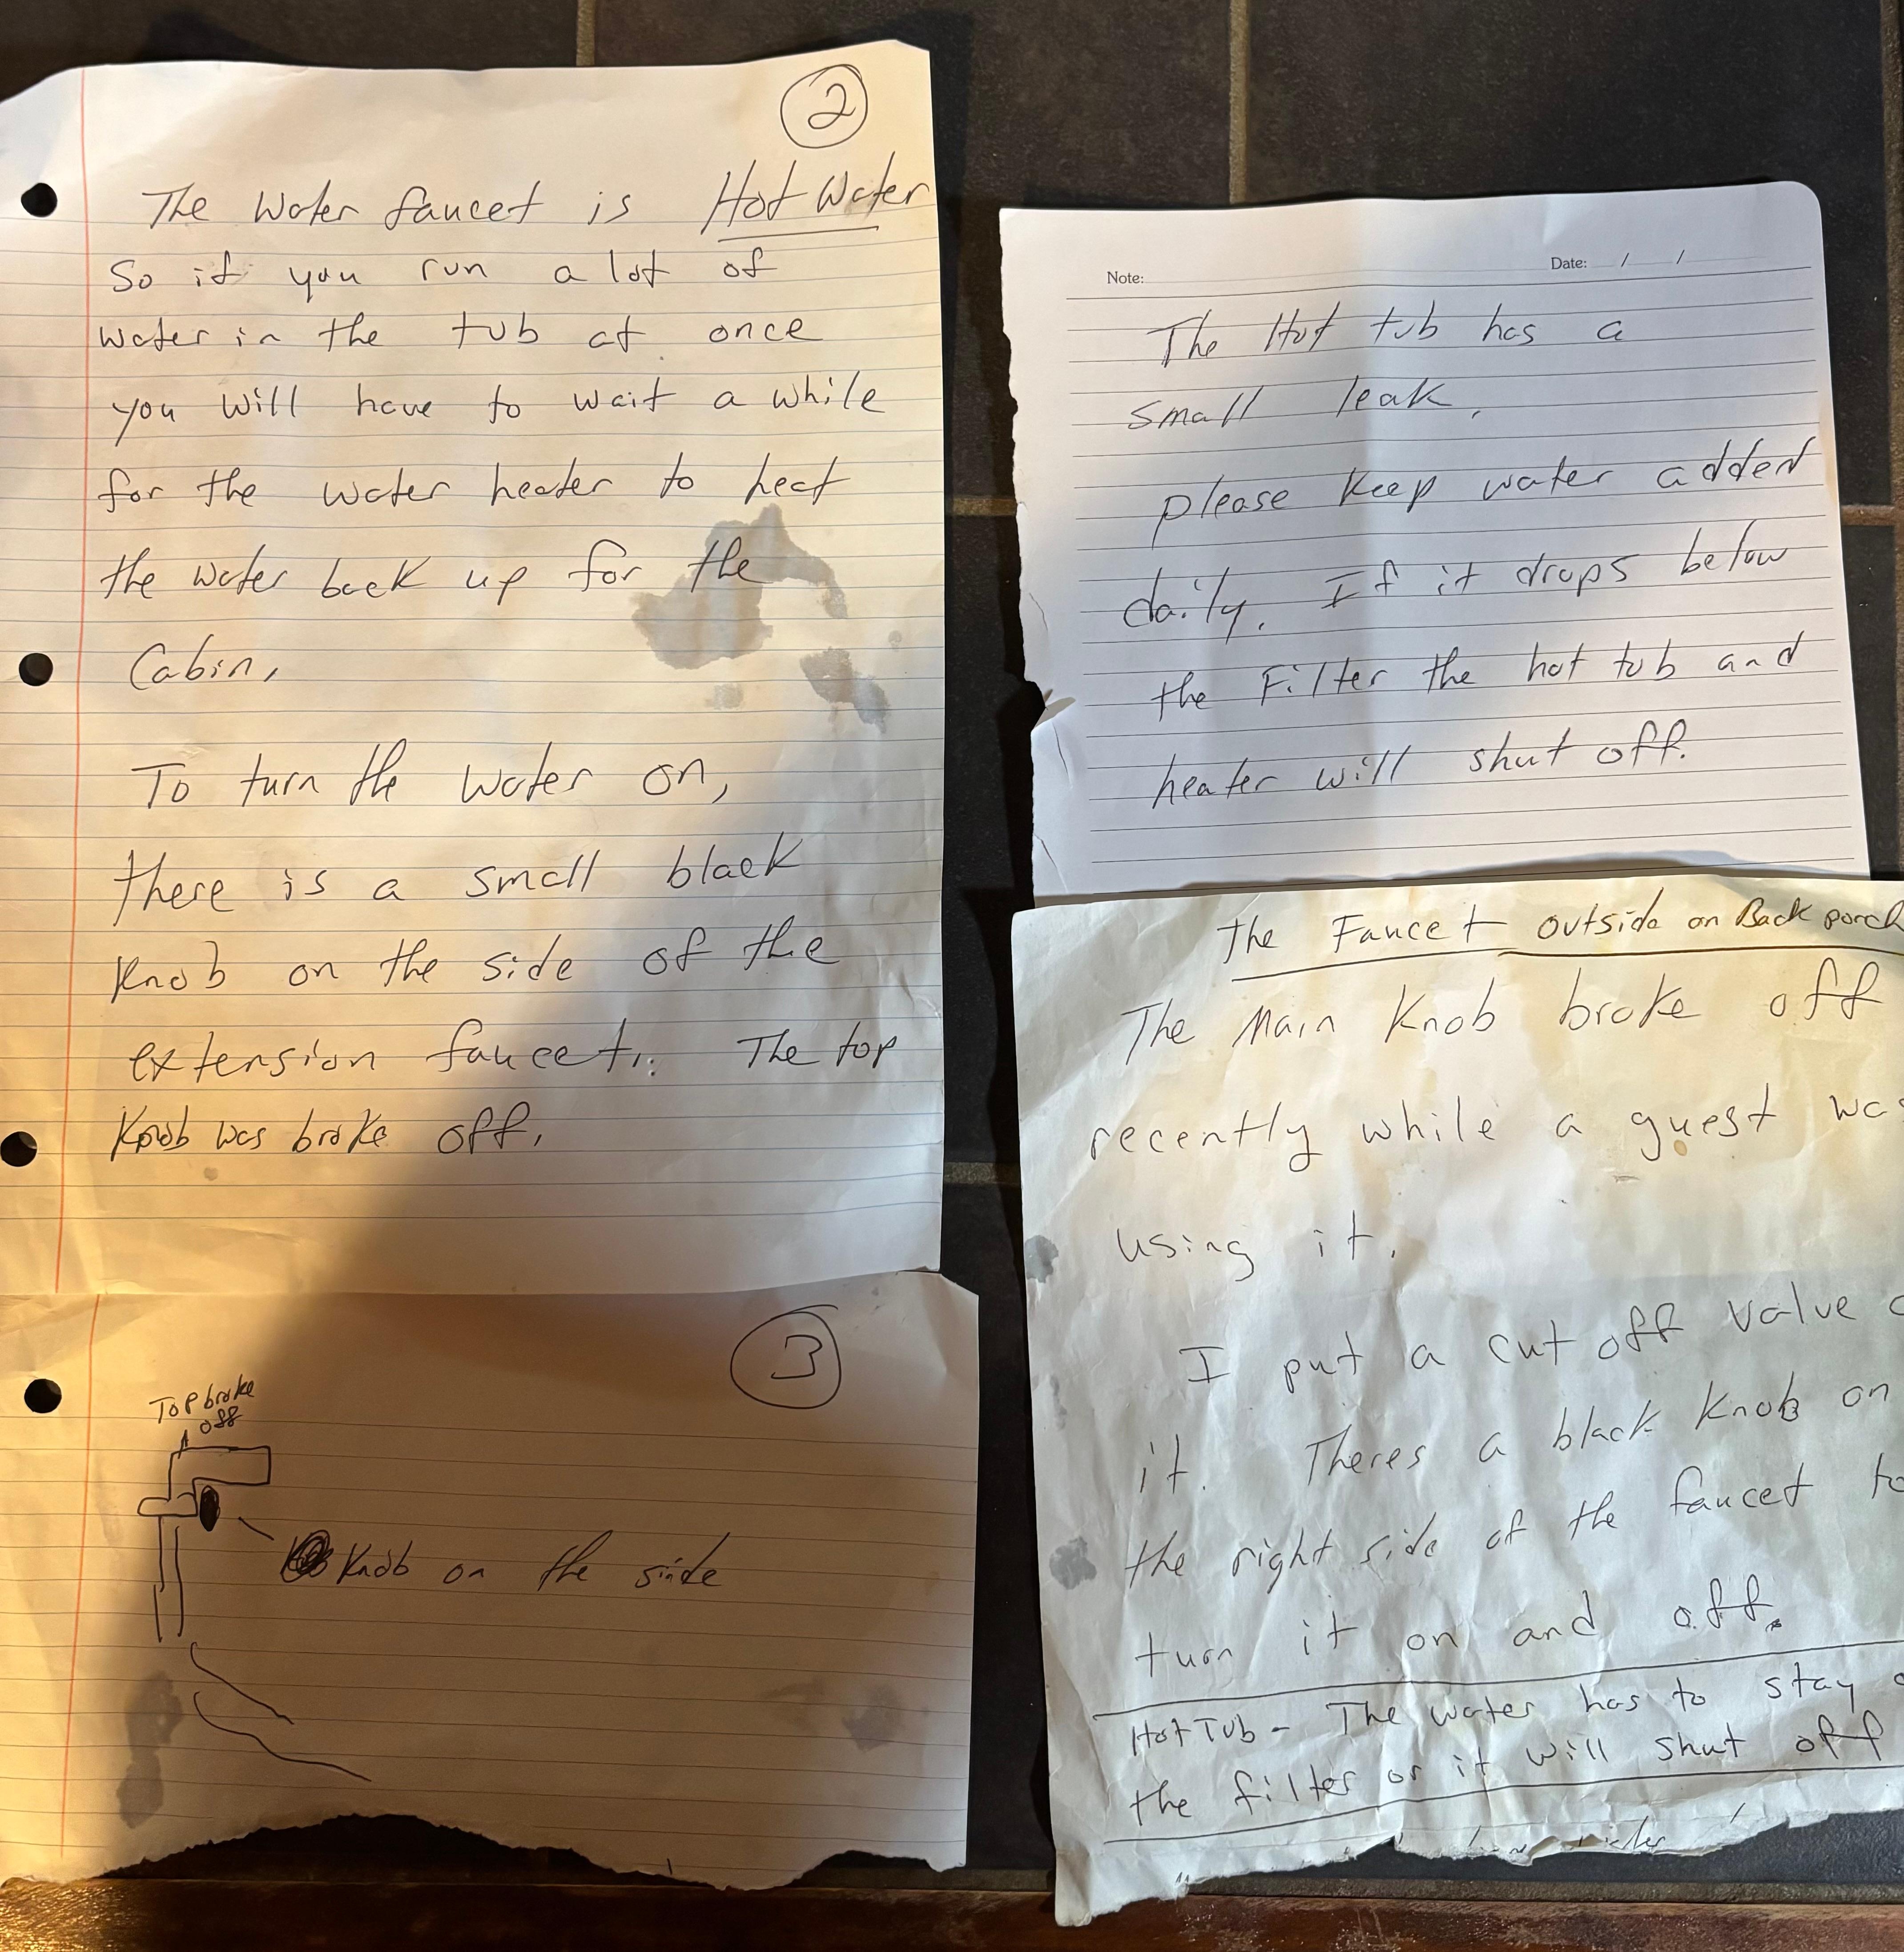 2
The Water faucet is Hot Water
So if you run a lot of
water in the tub at once
you will have to wait a while
for the water heater to heat
the water back up for the
Cabin,
To turn the water on,
there is a small black
knob on the side of the
extension faucet. The top
Knob was broke off.
3
Top broke
off
Knob on the side
Note:
Date: / /
The Hot tub has a
small leak.
please keep water added
daily. If it drops below
the Filter the hot tub and
heater will shut off.
The Faucet outside on Back porch
The Main Knob broke off
recently while a guest was
using it.
I put a cut off valve
it. Theres a black Knob on
the right side of the faucet to
turn it on and off.
Hot Tub - The water has to stay
the filter or it will shut off